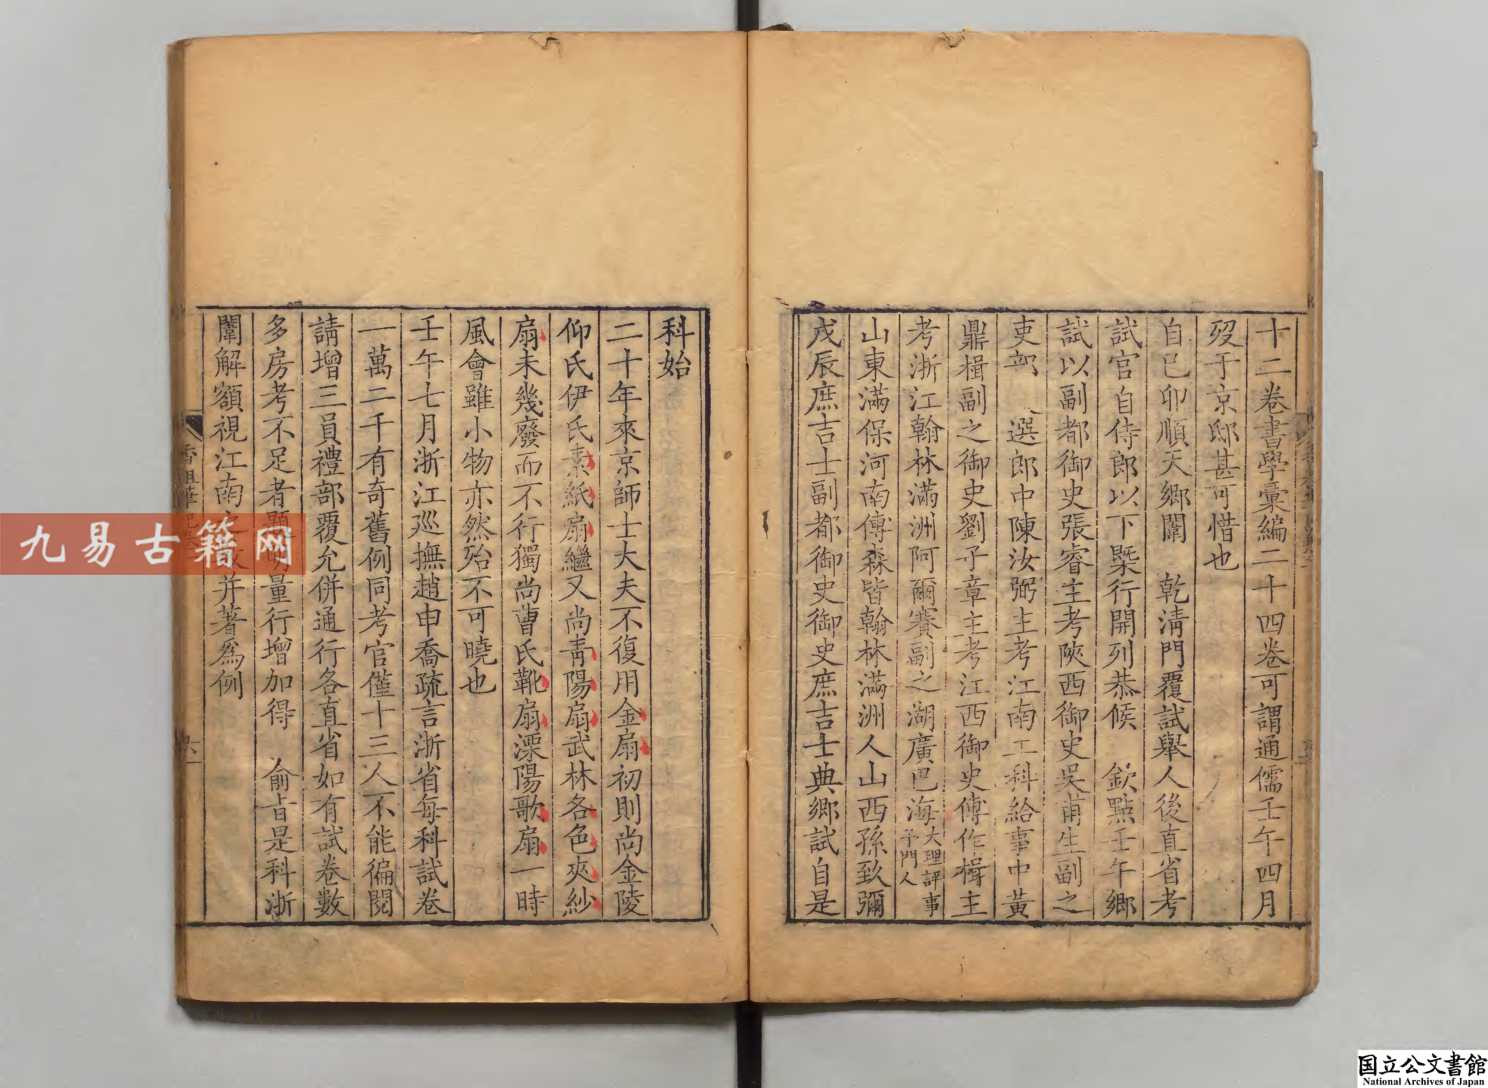 十二卷書學彙編二十四卷可謂通儒壬午四月
歿于京邸甚可惜也
自己卯順天鄉闈　乾淸門覆試舉人後直省考
試官自侍郎以下槩行開列恭候　欽㸃壬午鄉
試以副都御史張睿主考陝西御史吳甫生副之
吏部　選郎中陳汝弼主考江南工科給事中黃
鼎楫副之御史劉子章主考江西御史傅作楫主
考浙江翰林滿洲阿爾賽副之湖廣巴海大理評事予門人
山東滿保河南傅森皆翰林滿洲人山西孫致彌
戊辰庶吉士副都御史御史庶吉士典鄉試自是
科始
二十年來京師士大夫不復用金扇初則尚金陵
仰氏伊氏素紙扇繼又尚靑陽扇武林各色夾紗
扇未幾廢而不行獨尚曹氏靴扇溧陽歌扇一時
風會雖小物亦然殆不可曉也
壬午七月浙江巡撫趙申喬疏言浙省每科試卷
一萬二千有奇舊例同考官僅十三人不能徧閱
請增三員禮部覆允併通行各直省如有試卷數
多房考不足者題明量行增加得　俞旨是科浙
闈解額視江南之數并著爲例
九易古籍网
国立公文書館
National Archives of Japan